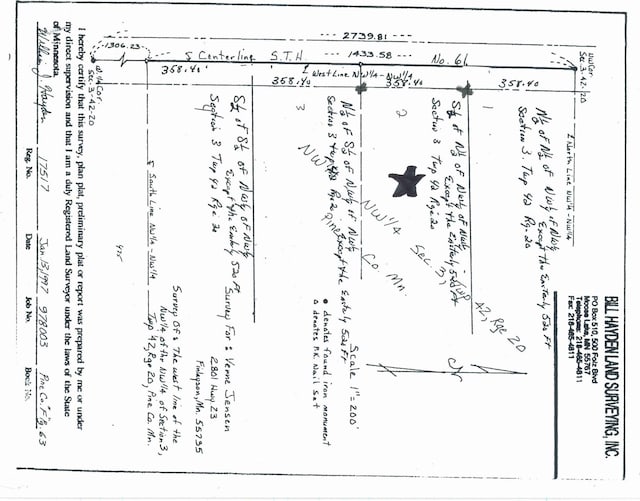 BILL HAYDEN LAND SURVEYING, INC.
PO Box 510, 500 Folz Blvd
Moose Lake, MN 55767
Telephone: 218-485-4811
Fax: 218-485-4811
2739.81
1306.23
1433.58
₵ Centerline S.T.H No. 61
NW Cor.
Sec. 3-42-20
W¼ Cor.
Sec. 3-42-20
West Line NW¼-NW¼
358.40
358.40
358.40
358.40
North Line NW¼-NW¼
South Line NW¼-NW¼
1
N½ of N½ of NW¼ of NW¼
Except the Easterly 520 Ft
Section 3, Twp 42 Rge. 20
2
S½ of N½ of NW¼ of NW¼
Except the Easterly 520 Ft
Section 3 Twp 42 Rge. 20
3
N½ of S½ of NW¼ of NW¼
Except the Easterly 520 Ft
Section 3 Twp 42 Rge 20
S½ of S½ of NW¼ of NW¼
Except the Easterly 520 Ft
Section 3 Twp 42 Rge. 20
NW¼ NW¼
Sec 3, Twp 42, Rge 20
Pine Co. Mn.
N
Scale 1"=200'
● denotes found iron monument
△ denotes P.K. Nail set
Survey For: Verne Jensen
2801 Hwy 23
Finlayson, Mn. 55735
Survey Of: The West line of the
NW¼ of the NW¼ of Section 3,
Twp 42, Rge 20, Pine Co. Mn.
I hereby certify that this survey, plan plat, preliminary plat or report was prepared by me or under
my direct supervision and that I am a duly Registered Land Surveyor under the laws of the State
of Minnesota.
William J. Hayden Reg. No. 17517 Date Jan 13, 1997 Job No. 978003 Book No. Pine Co. F.B. 63